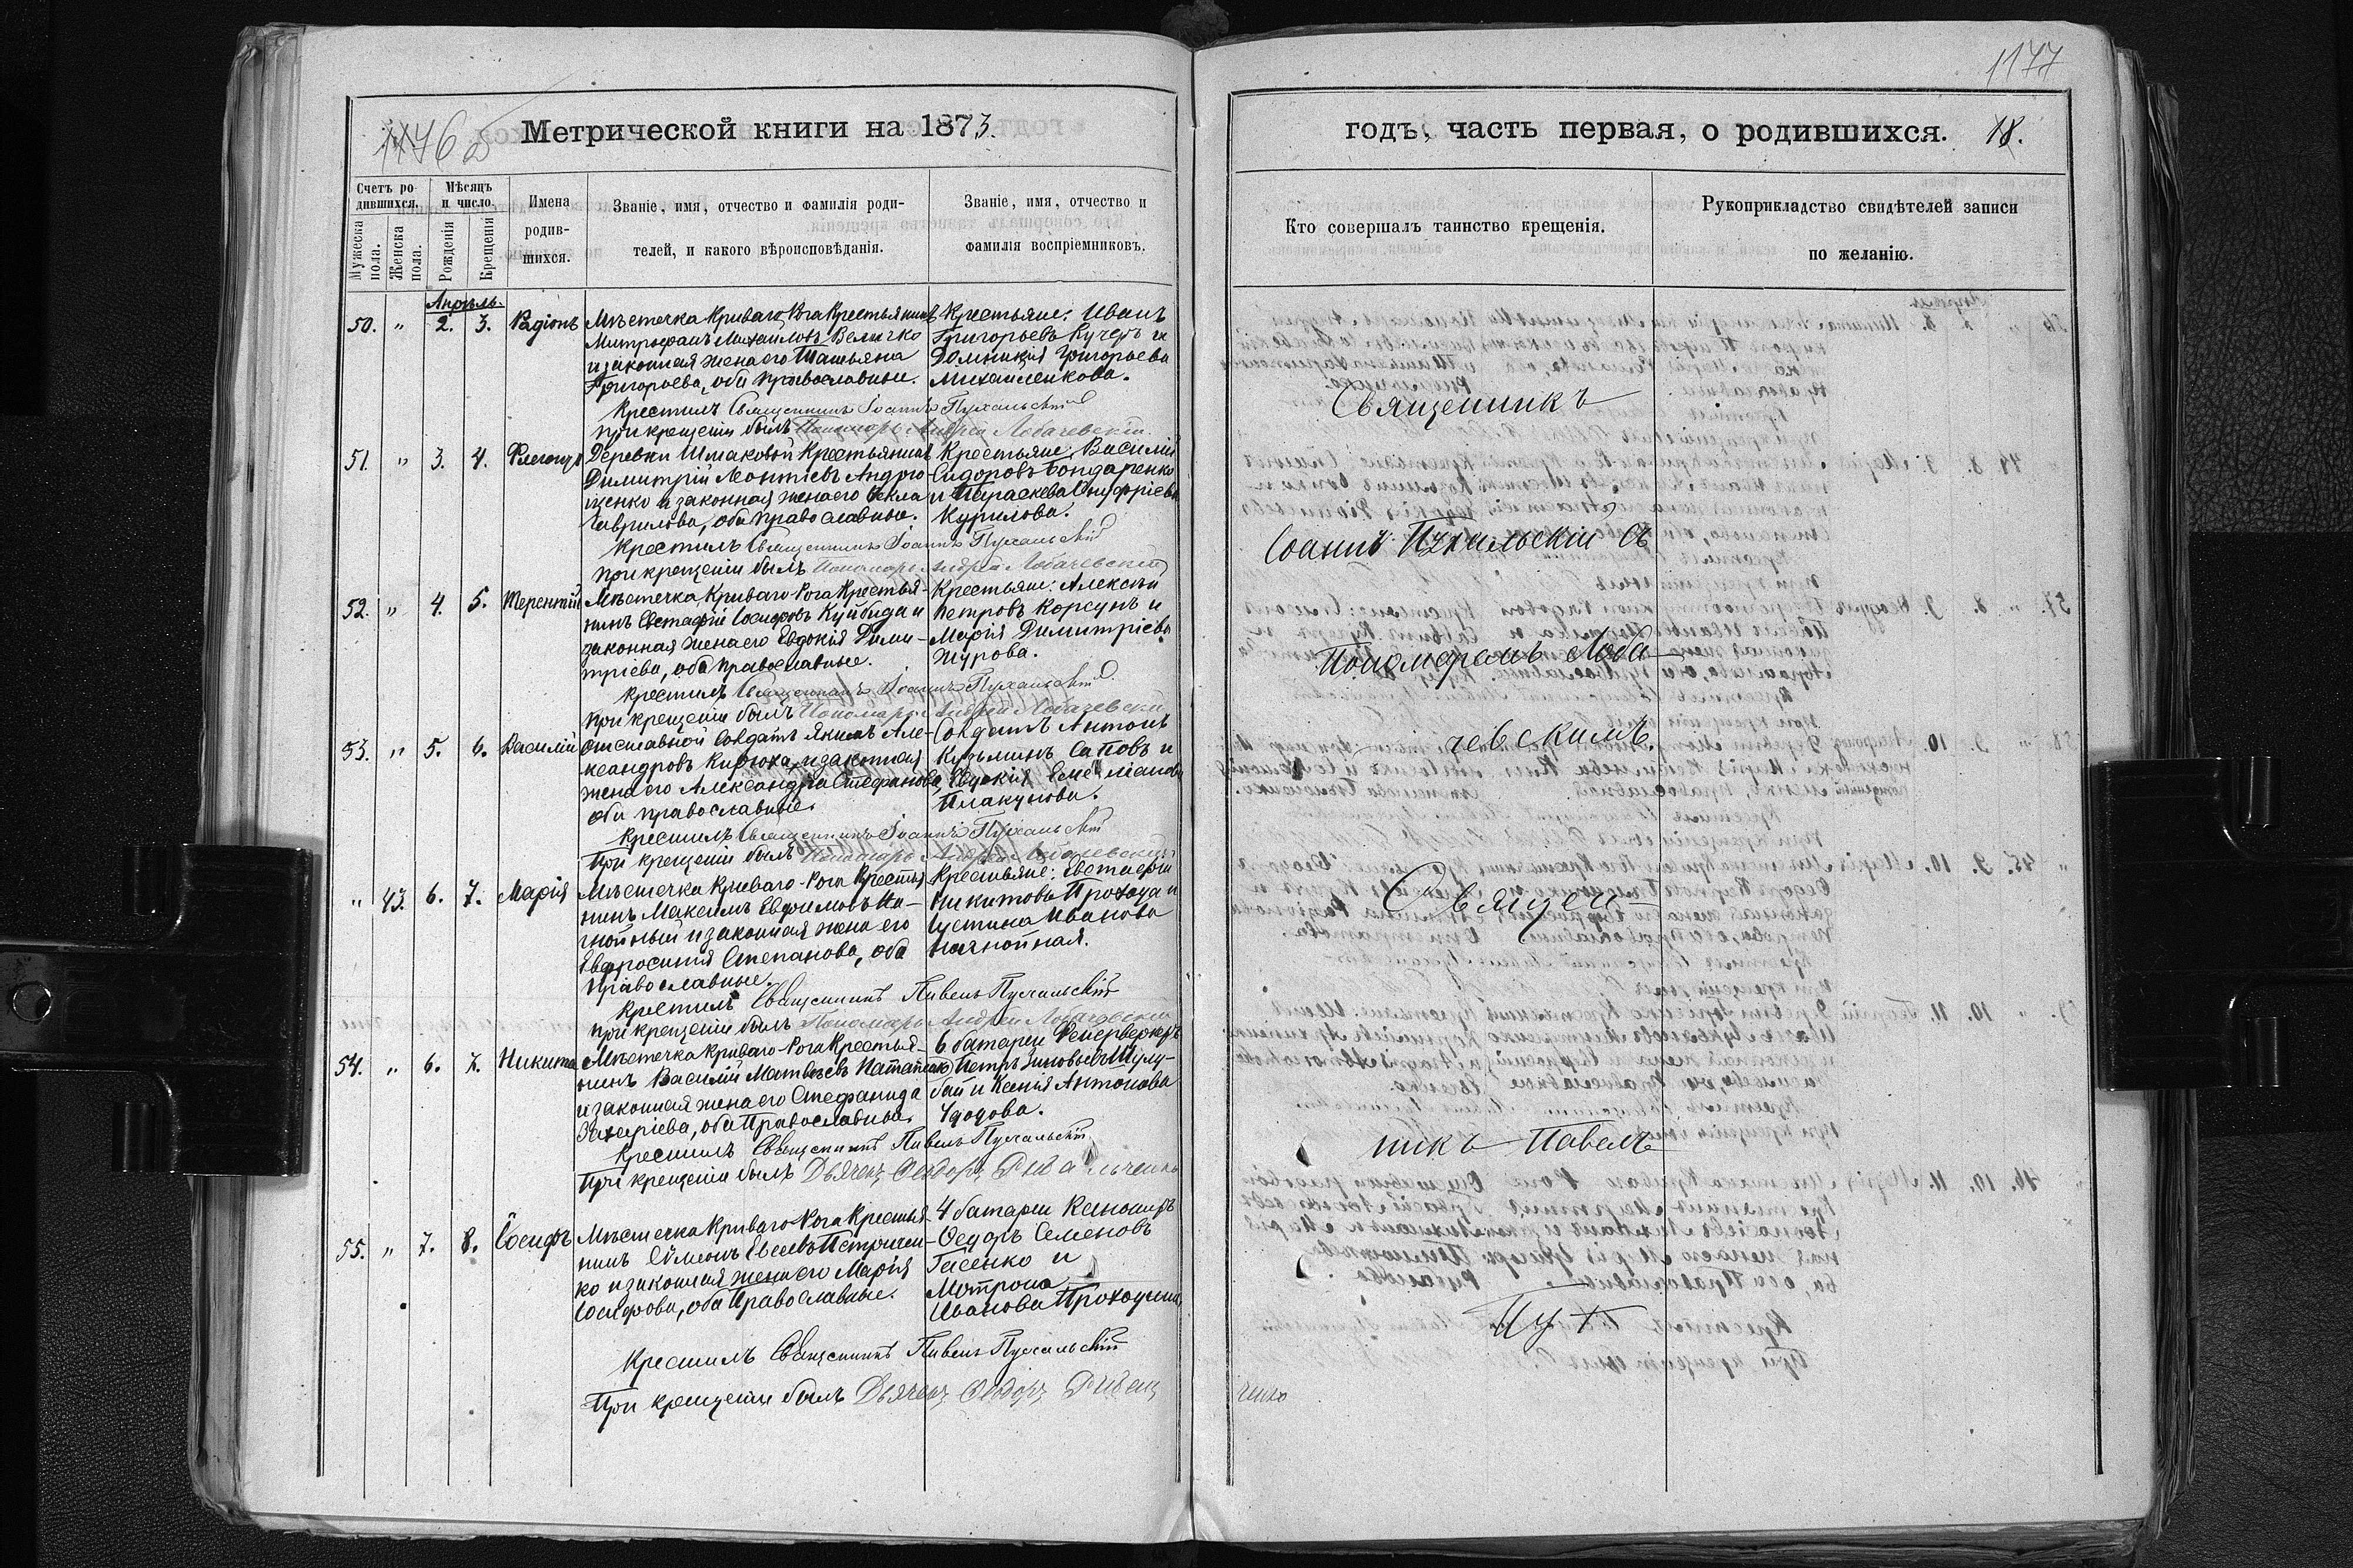 1176 об
Метрической книги на 1873.
Счетъ родившихся.
Мѣсяцъ и число.
Мужеска пола.
Женска пола.
Рожденія
Крещенія
Имена родившихся.
Званіе, имя, отчество и фамилія роди-
телей, и какого вѣроисповѣданія.
Званіе, имя, отчество и
фамилія воспріемниковъ.
Апрѣль.
50. " 2. 3. Радіонъ
Мѣстечка Криваго Рога Крестьянинъ
Митрофанъ Михаиловъ Величко
и законная жена его Татьяна
Григорьева, оба православные.
Крестьяне: Иванъ
Григорьевъ Кучеръ и
Домникія Григорьева
Михаиленкова.
Крестилъ Священникъ Іоаннъ Пухальскій
При крещеніи былъ Пономарь Андрей Лобачевскій
51. " 3. 4.
Деревни Шмаковой Крестьянинъ
Димитрій Леонтіевъ Андрю
щенко и законная жена его Ѳекла
Гаврилова, оба православные.
Крестьяне: Василій
Сидоровъ Бондаренко
и Параскева Онуфріева
Курилова.
Крестилъ Священникъ Іоаннъ Пухальскій
при крещеніи былъ Пономарь Андрей Лобачевскій
52. " 4. 5. Терентій
Мѣстечка Криваго-Рога Крестья-
нинъ Евстафій Іосифовъ Куйбида и
законная жена его Евдокія Дими-
тріева, оба православные.
Крестьяне: Алексѣй
Петровъ Корсунъ и
Марія Димитріева
Журова.
Крестилъ Священникъ Іоаннъ Пухальскій
При крещеніи былъ Пономарь Андрей Лобачевскій
53. " 5. 6. Василій
Отставной Солдатъ Якимъ Але-
ксандровъ Кирюха и законная
жена его Александра Стефанова,
оба православные.
Солдатъ Антонъ
Кузьминъ Саповъ и
Евдокія Емельянова
Плакунова.
Крестилъ Священникъ Іоаннъ Пухальскій
При крещеніи былъ Пономарь Андрей Лобачевскій
" 43. 6. 7. Марія
Мѣстечка Криваго-Рога Крестья
нинъ Максимъ Евфимовъ На-
гнойный и законная жена его
Евфросинія Степанова, оба
православные.
Крестьяне: Евстафій
Никитовъ Прохода и
Іустина Иванова
Нагнойная.
Крестилъ Священникъ Павелъ Пухальскій
При крещеніи былъ Пономарь Андрей Лобачевскій
54. " 6. 7. Никита
Мѣстечка Криваго-Рога Крестья-
нинъ Василій Матвѣевъ
и законная жена его Стефанида
Захаріева, оба Православные.
6 батареи Фейерверкеръ
Петръ Зиновьевъ Шулу-
бай и Ксенія Антонова
Чудова.
Крестилъ Священникъ Павелъ Пухальскій
При крещеніи былъ Дьячекъ Ѳеодоръ
55. " 7. 8. Іосифъ
Мѣстечка Криваго-Рога Крестья
нинъ Сѵмеонъ Евсеевъ Петричен-
ко и законная жена его Марія
Іосифова, оба Православные.
4 батареи Канониръ
Ѳедоръ Семеновъ
Гасенко и
Матрона
Иванова Проходина.
Крестилъ Священникъ Павелъ Пухальскій
При крещеніи былъ Дьячекъ Ѳеодоръ
1177
годъ, часть первая, о родившихся. 18.
Кто совершалъ таинство крещенія.
Рукоприкладство свидѣтелей записи
по желанію.
Священникъ
Іоаннъ Пухальскій съ
Пономаремъ Лоба-
чевскимъ.
Священ-
никъ Павелъ
Пух
ченко